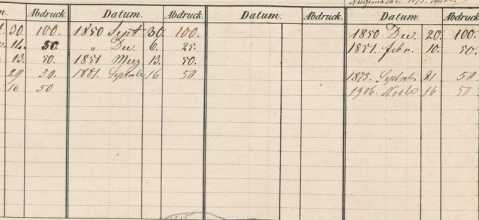 Abdruck. Datum. Abdruck. Datum. Abdruck. Datum.
30. 100. 1850 Sept 30. 100. 1850 Dec. 20. 100.
14. 50. " Dec. 6. 25. 1851. febr. 10. 50.
13. 50. 1851 13. 50.
29 30. 1861. Septbr 16 50 1875. 21 50
16 50 1906. 16 50